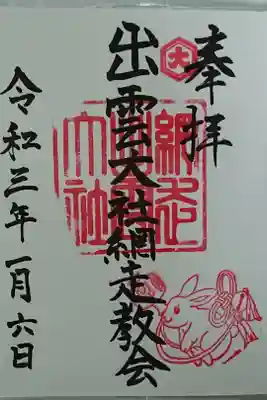 奉拝
大
出雲大社網走教会
令和三年一月六日